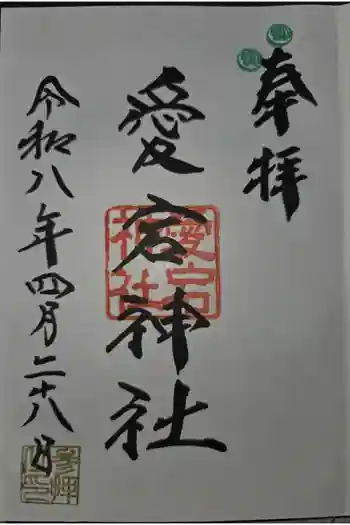 奉拝
愛宕神社
愛宕神社
令和八年四月二十八日